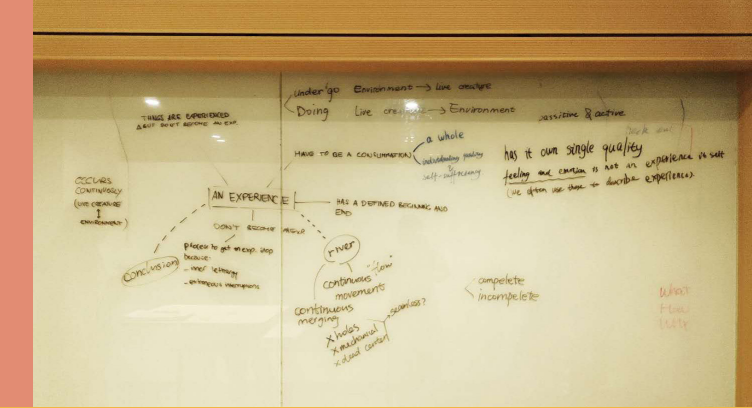 undergo Environment → live creature
Doing Live creature → Environment
THINGS ARE EXPERIENCED
passitive & active
HAVE TO BE A CONSUMMATION
a whole
individualizing quality
&
self-sufficiency
has it own single quality
feeling and emotion is not an experience it self
(we often use those to describe experiences).
OCCURS
CONTINOUSLY
(LIVE CREATURE
↕
ENVIRONMENT)
AN EXPERIENCE
HAS A DEFINED BEGINNING AND
END
DIDN'T BECOME
process to get an exp. stop
because:
- inner lethargy
- extraneous interruptions
conclusion
river
continuous "flow"
movements
continuous
merging
x holes
x mechanical
x dead center
seamless?
compelete
incompelete
What
How